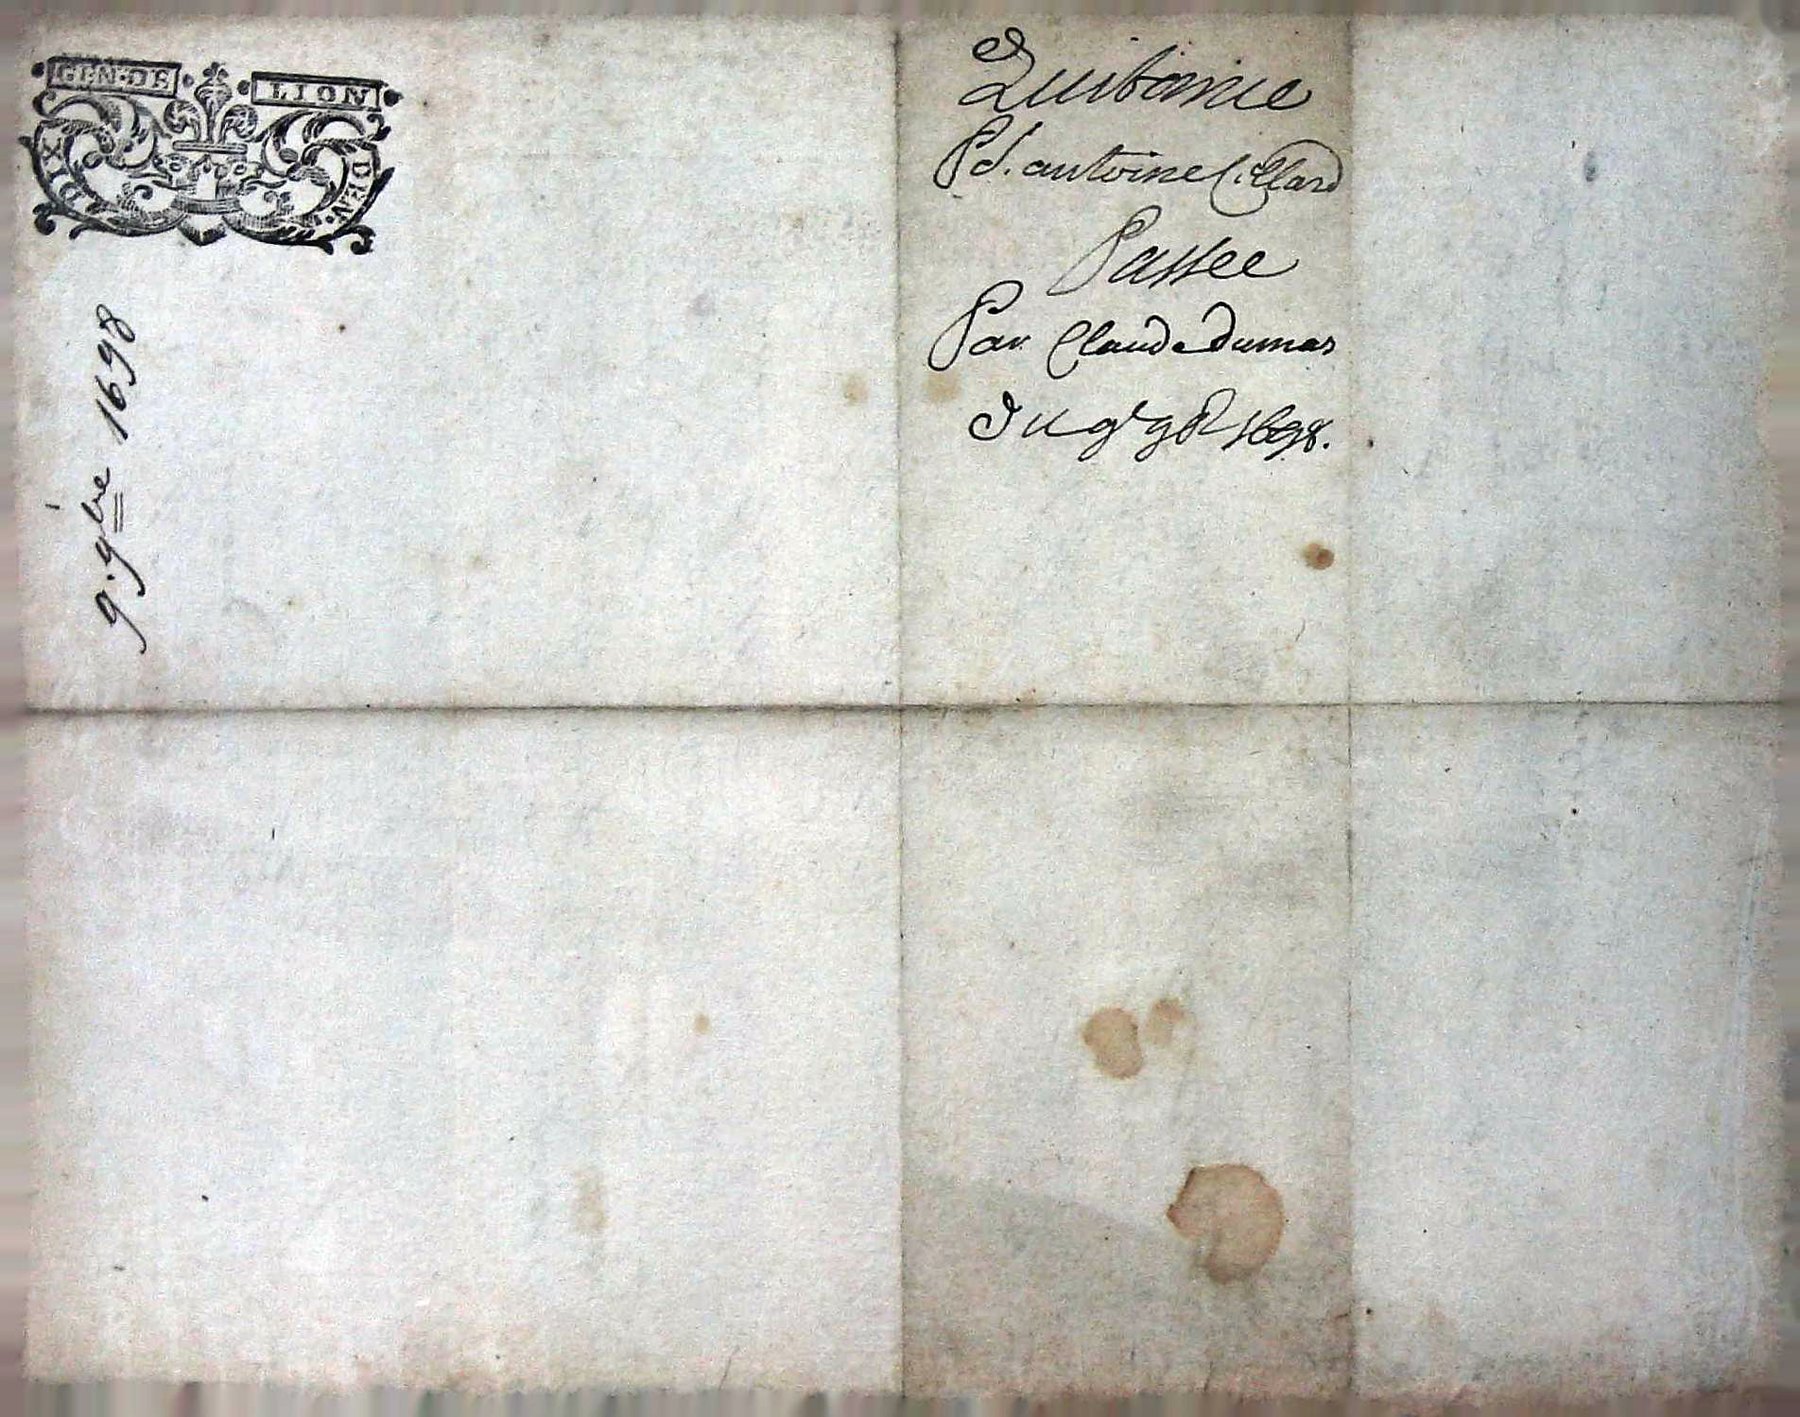 GEN·DE LION
DIX DEN.
9. 9bre 1698
Quittance
Pr. antoine
Passee
Par Claude dumas
Du 9e 9bre 1698.